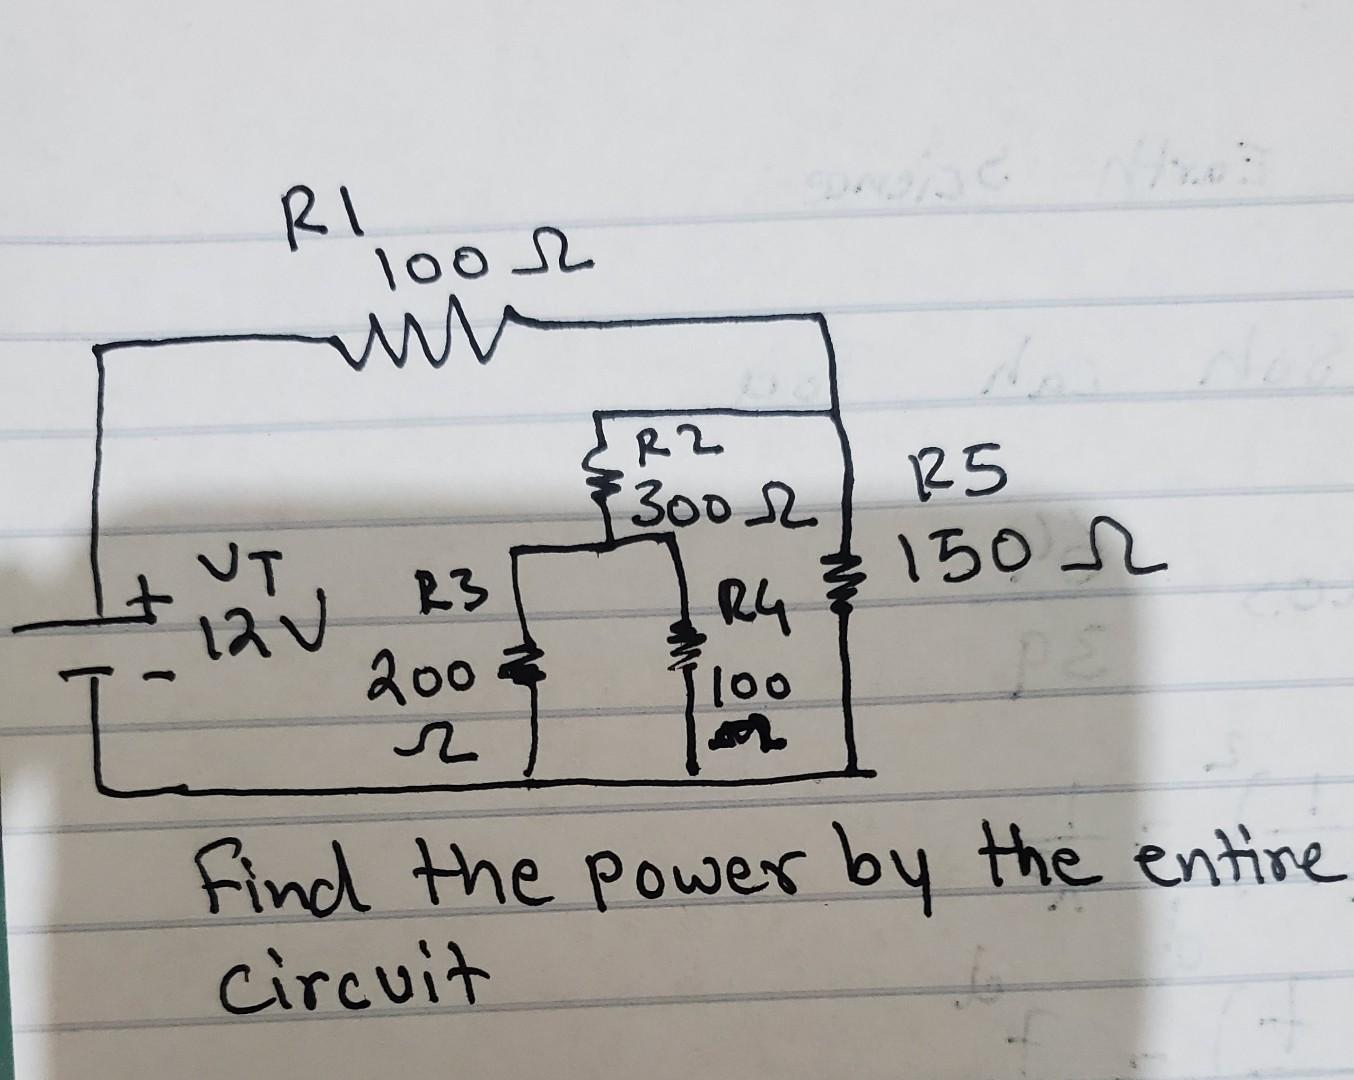 R1
100 Ω
R2
300 Ω
R5
150 Ω
VT
+
12V
-
R3
200
Ω
R4
100
Ω
Find the power by the entire
circuit